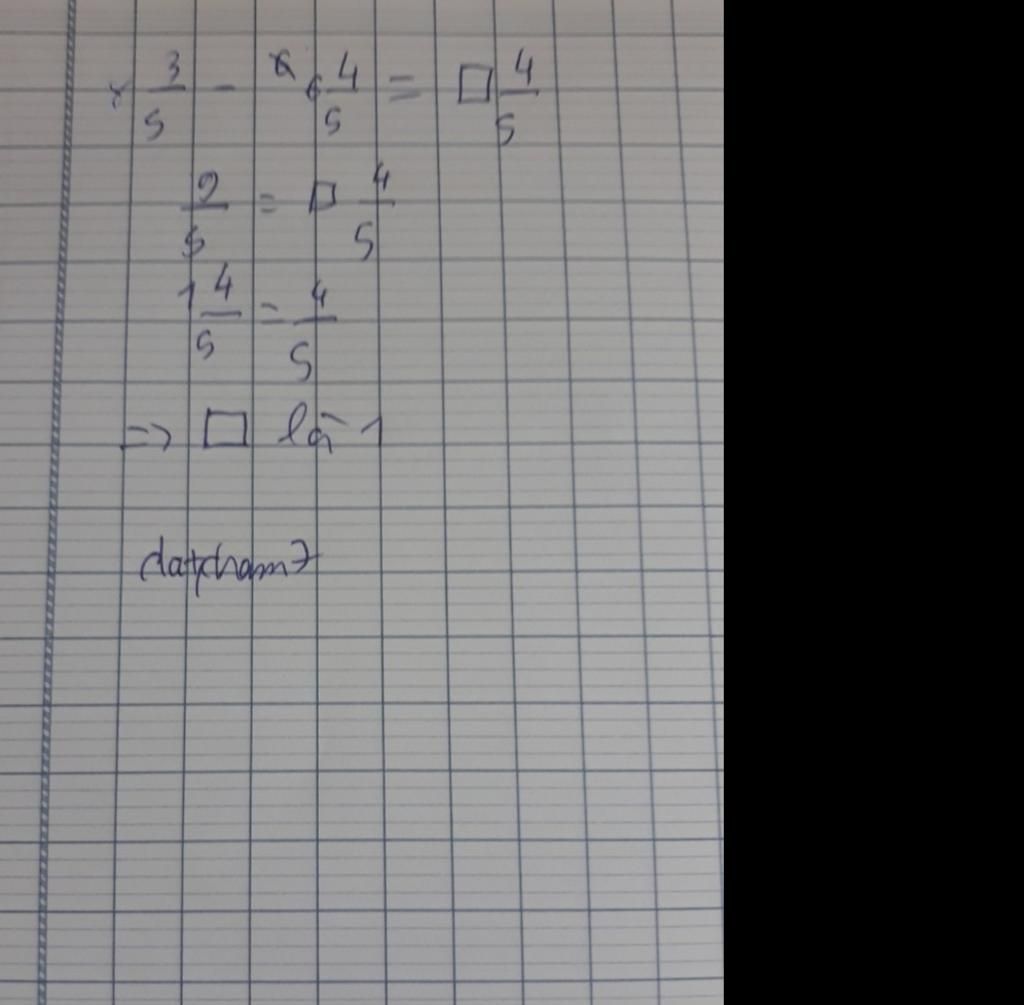 8 3/5 - 6 4/5 = □ 4/5
9/5 = □ 4/5
1 4/5 = 4/5
=> □ là 1
datpham7